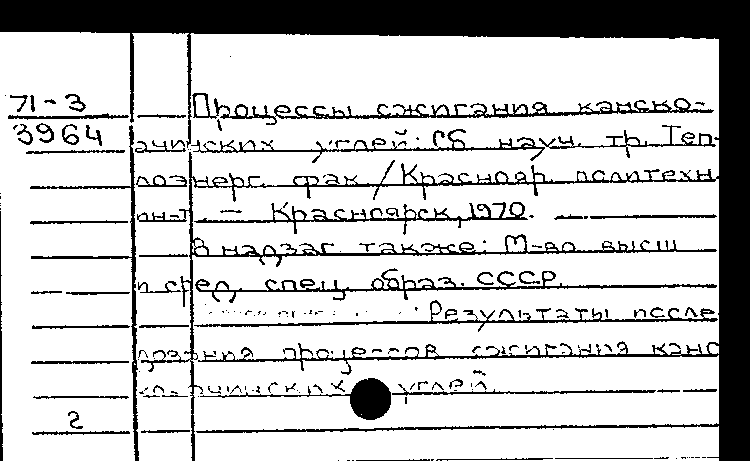 71-3
Процессы сжигания канско-
3964
ачинских углей: Сб. науч. тр. Теп-
лоэнерг. фак / Краснояр. политехн.
ин-т. — Красноярск, 1970.
В надзаг. также: М-во высш
и сред. спец. образ. СССР.
Результаты иссле
дования процессов сжигания канс
ко-ачинских углей.
2